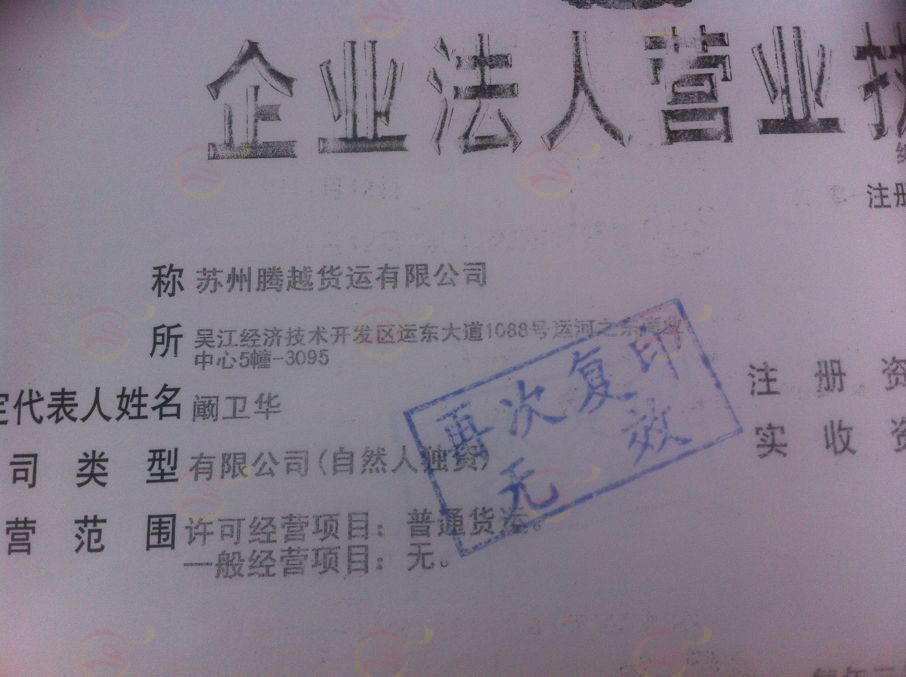 企业法人营业执
注册
称 苏州腾越货运有限公司
所 吴江经济技术开发区运东大道1088号运河之东商业
中心5幢-3095
定代表人姓名 阚卫华
注册资
司类型 有限公司(自然人独资)
实收资
营范围 许可经营项目：普通货运。
一般经营项目：无。
再次复印
无效